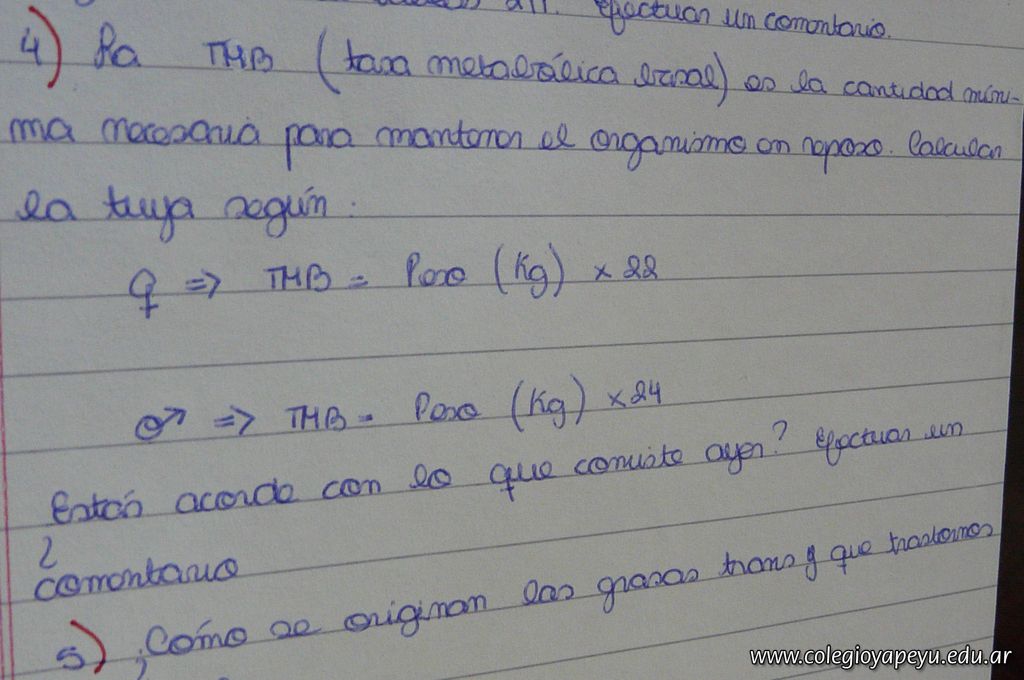 efectuar un comentario.
4) La TMB (tasa metabólica basal) es la cantidad míni-
ma necesaria para mantener el organismo en reposo. Calcular
la tuya según:
♀ => TMB = Peso (Kg) × 22
♂ => TMB = Peso (Kg) × 24
Estás acorde con lo que comiste ayer? efectuar un
¿
comentario
5) ¿Cómo se originan las grasas trans y que trastornos
www.colegioyapeyu.edu.ar